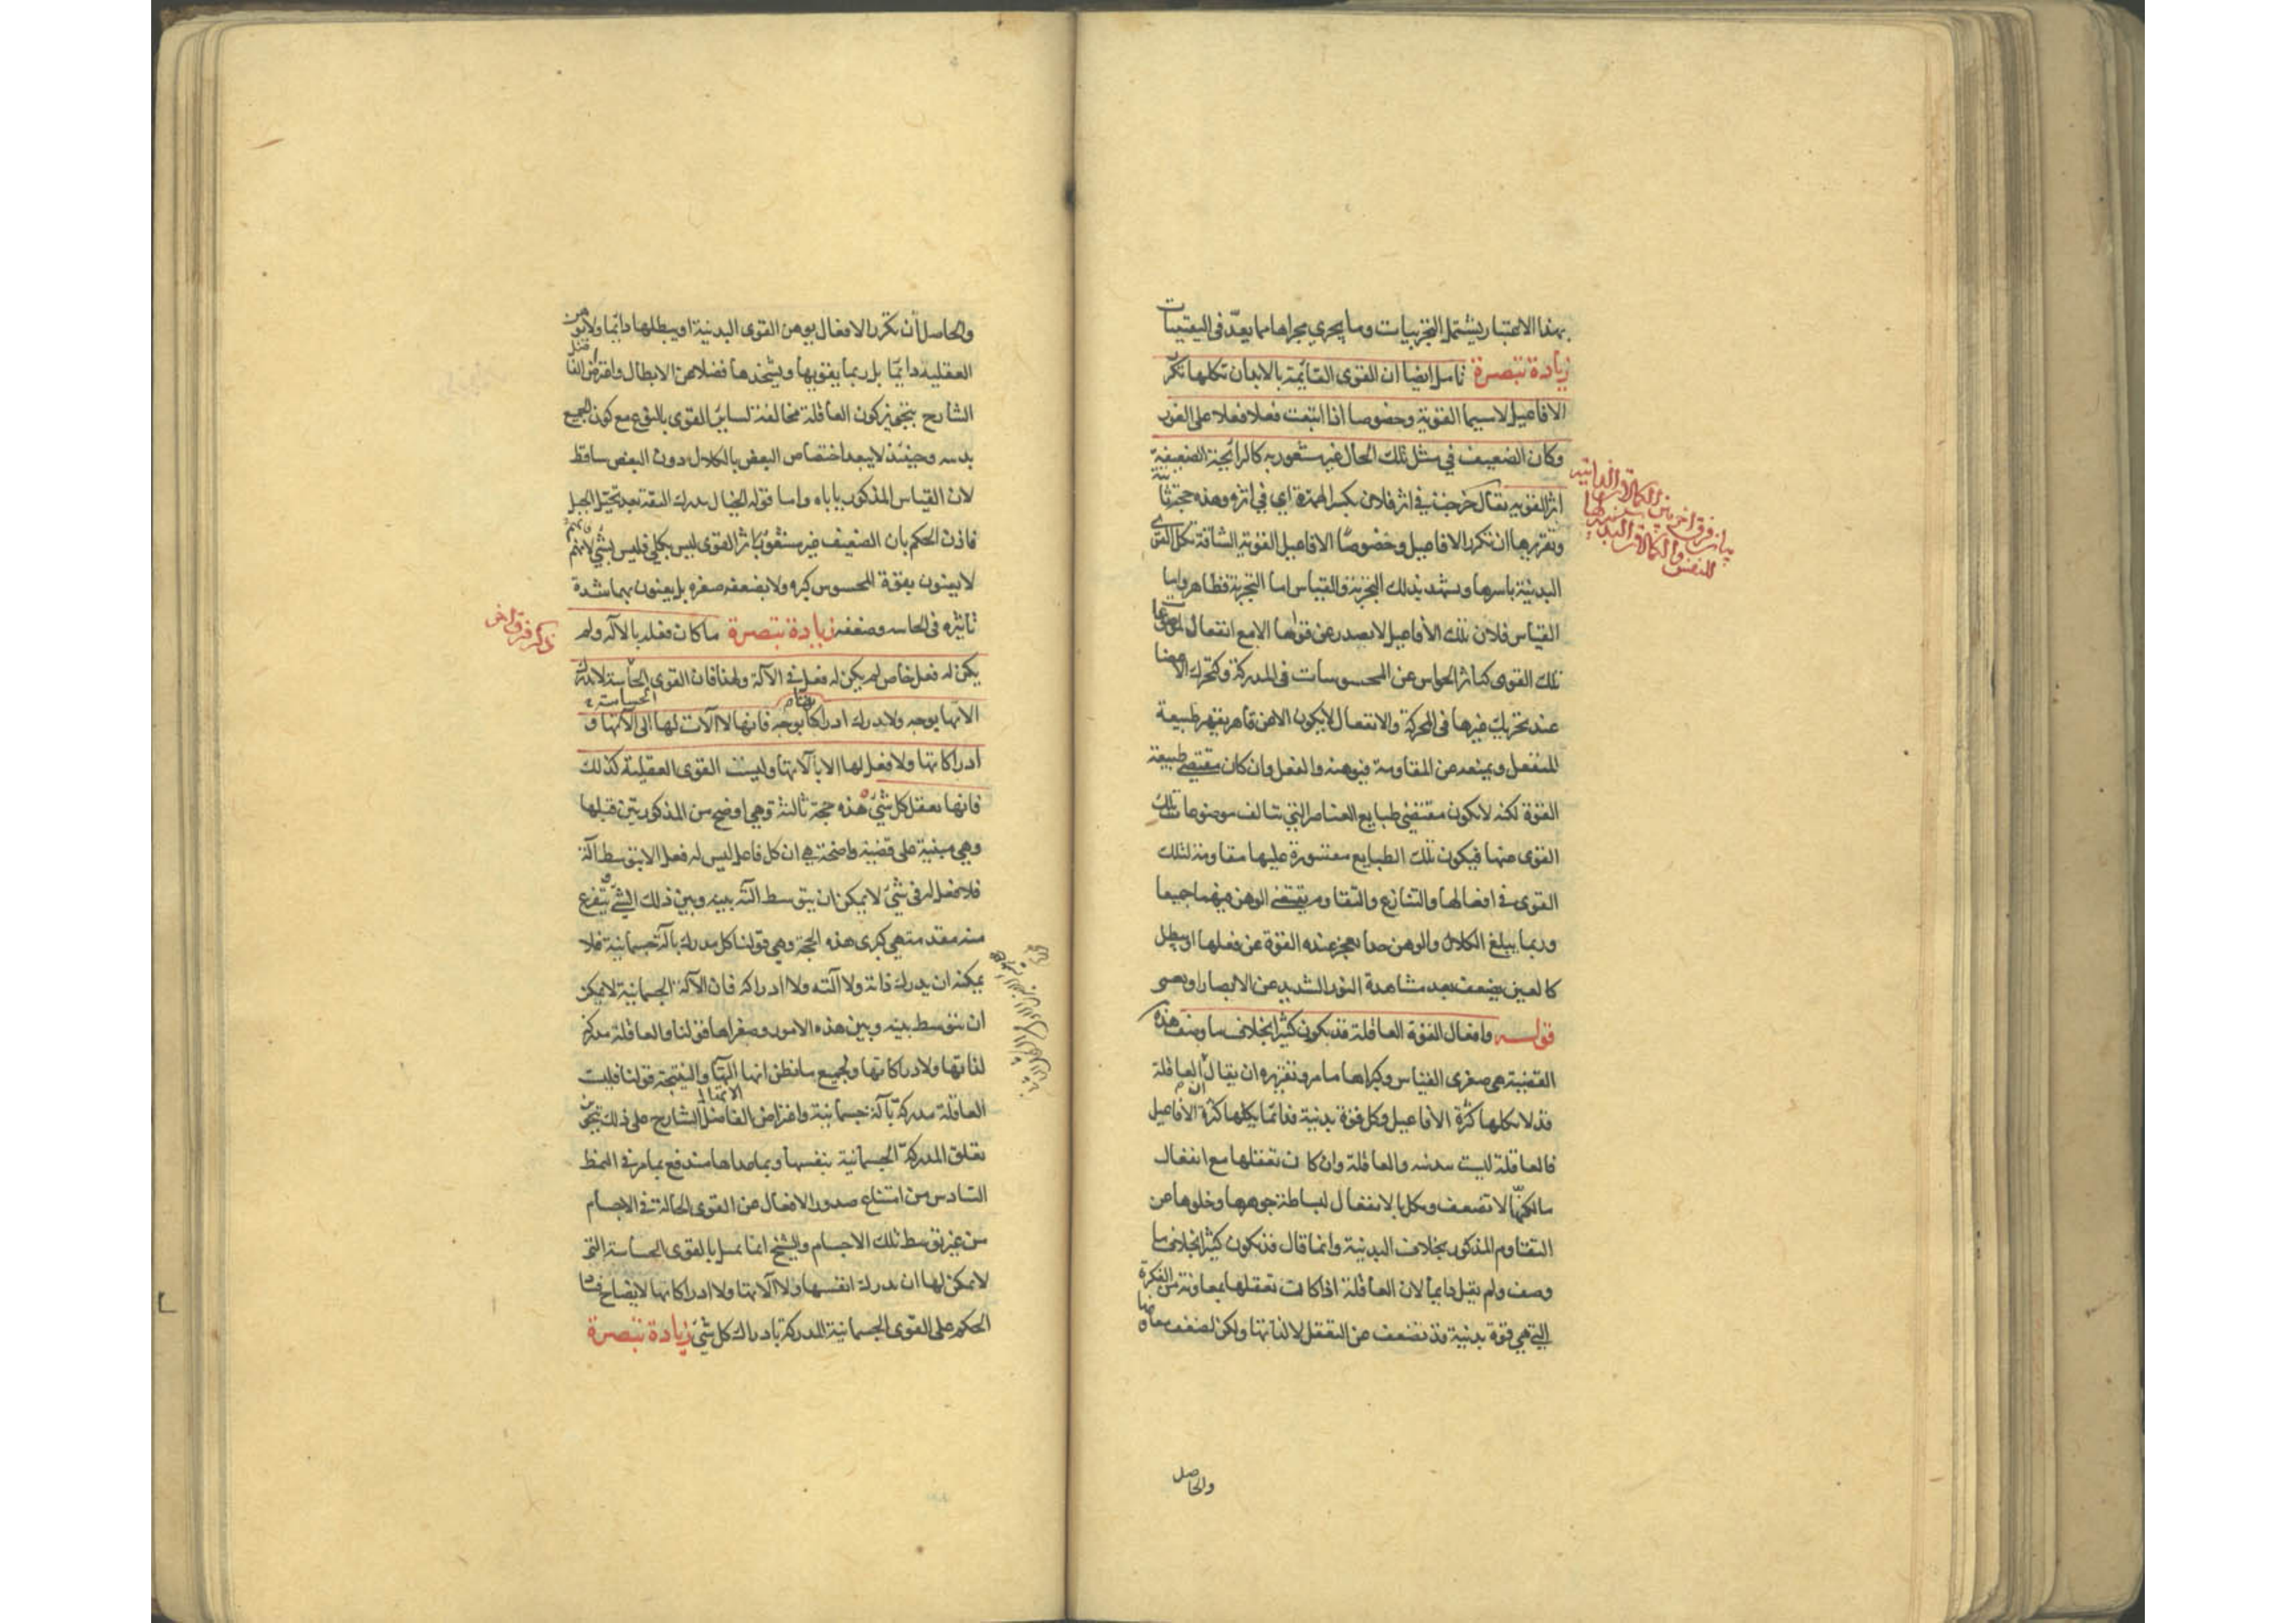 بهذا الاعتبار يشتمل التجربيات وما يجري مجراها مما يعدّ في اليقينيات
زيادة تبصرة تأمل ايضا ان القوى القائمة بالابدان تكلها تكرر
الافاعيل لاسيما القوية وخصوصا اذا اتبعت فعلا فعلا على الفور
وكان الضعيف في مثل تلك الحال غير مشعور به كالرائحة الضعيفة
اثر القوية يقال خرجت في اثر فلان بكسر الهمزة اي في اثره وهذه حجة ثانية
وتقريرها ان تكرر الافاعيل وخصوصًا الافاعيل القوية الشاقة تكل القوى
البدنية باسرها ويشهد بذلك التجربة والقياس اما التجربة فظاهر واما
القياس فلان تلك الأفاعيل لا يصدر عن قواها الا مع انفعال لموضوعات
تلك القوى كتاثر الحواس عن المحسوسات في المدركة وكتحرك الاعضا
عند تحريك غيرها في المحركة والانفعال لا يكون الا عن قاهر يقهر طبيعة
المنفعل ويمنعه عن المقاومة فيوهنه والفعل وان كان مقتضى طبيعة
القوة لكنه لا يكون مقتضى طبايع العناصر التي تتالف موضوعات تلك
القوى عنها فيكون تلك الطبايع مقسورة عليها مقاومة لتلك
القوى في افعالها والتنازع والتقاوم يقتضي الوهن فيهما جميعا
وربما يبلغ الكلال والوهن حدا يعجز عنده القوة عن فعلها او يبطل
كالعين يضعف بعد مشاهدة النور الشديد عن الابصار او يعمى
قوله وافعال القوة العاقلة قد يكون كثيرا بخلاف ما وصف هذه
القضية هي صغرى القياس وكبراها ما مر وتقريره ان يقال ان العاقلة
قد لا يكلها كثرة الأفاعيل وكل قوة بدنية فدائما يكلها كثرة الافاعيل
فالعاقلة ليست بدنية والعاقلة وان كان تعقلها مع انفعال
ما لكنّها لا تضعف وتكل بالانفعال لبساطة جوهرها وخلوها عن
التقاوم المذكور بخلاف البدنية وانما قال قد يكون كثيرا بخلاف ما
وصف ولم يقل دايما لان العاقلة اذا كانت تعقلها بمعاونة من الفكرة
التي هي قوة بدنية قد تضعف عن التعقل لا لذاتها ولكن لضعف معاونها
والحاصل
بيان فرق اخر بين الكمالات الذاتية
للنفس والكمالات البدنية
والحاصل أن تكرر الافعال يوهن القوى البدنية او يبطلها دائما ولا يوهن
العقلية دايمًا بل ربما يقويها ويشحذها فضلا عن الابطال واعترض الفاضل
الشارح بتجويز كون العاقلة مخالفة لساير القوى بالنوع مع كون الجميع
بدنية وحينئذ لا يبعد اختصاص البعض بالكلال دون البعض ساقط
لان القياس المذكور ياباه واما قوله الخيال يدرك البقة بعد تخيل الجبل
فاذن الحكم بان الضعيف غير مشعور به اثر القوى ليس بكلي فليس بشئ لانهم
لا يعنون بقوة المحسوس كبره ولا بضعفه صغره بل يعنون بهما شدة
تاثيره في الحاسه وضعفه زيادة تبصرة ما كان فعله بالالة ولم
يكن له فعل خاص لم يكن له فعل في الآلة ولهذا فان القوى الحساسة لا يدرك
الاتها بوجه ولا يدرك ادراكاتها بوجه فانها لا آلات لها الى آلاتها و
ادراكاتها ولا فعل لها الا بآلاتها وليست القوى العقلية كذلك
فانها تعقل كل شئ هذه حجة ثالثة وهي اوضح من المذكورتين قبلها
وهي مبنية على قضية واضحة هي ان كل فاعل ليس له فعل الا بتوسط آلة
فلا فعل له في شئ لا يمكن ان يتوسط آلته بينه وبين ذلك الشئ ويتفرع
منه مقدمة هي كبرى هذه الحجة وهي قولنا كل مدرك بآلة جسمانية فلا
يمكنه ان يدرك ذاته ولا آلته ولا ادراكه فان الآلة الجسمانية لا يمكن
ان يتوسط بينه وبين هذه الامور وصغراها قولنا والعاقلة مدركة
لذاتها ولادراكاتها ولجميع ما نظن انها آلتها والنتيجة قولنا فليست
العاقلة مدركة بآلة جسمانية واعتراض الفاضل الشارح على ذلك بتجويز
تعلق المدركة الجسمانية بنفسها وبما عداها مندفع بما مر في النمط
السادس من امتناع صدور الافعال عن القوى الحالة في الاجسام
من غير توسط تلك الاجسام والشيخ انما مثل بالقوى الحساسة التي
لا يمكن لها ان يدرك انفسها ولا آلاتها ولا ادراكاتها لايضاح فساد
الحكم على القوى الجسمانية المدركة بادراك كل شئ زيادة تبصرة
ذكر فرق اخر